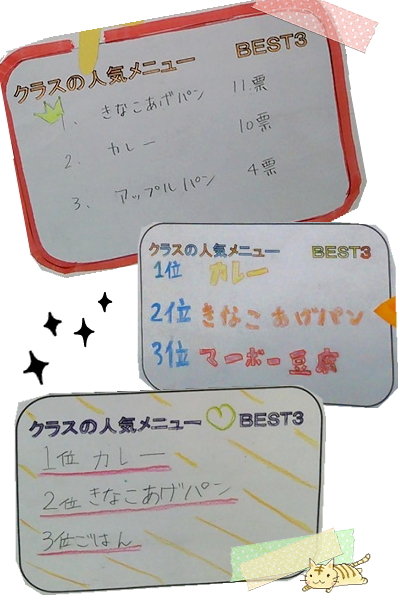 クラスの人気メニュー BEST3
1、 きなこあげパン 11票
2、 カレー 10票
3、 アップルパン 4票
クラスの人気メニュー BEST3
1位 カレー
2位 きなこあげパン
3位 マーボー豆腐
クラスの人気メニュー BEST3
1位 カレー
2位 きなこあげパン
3位 ごはん